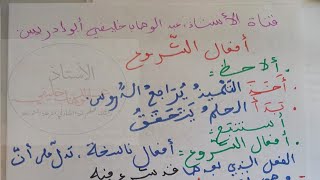 قناة الأستاذ: عبد الوهاب خليفي أبو إدريس.
أفعال الشروع
ألاحظ:
أخذ التلميذُ يُراجعُ الدروسَ.
بدأ الحلمُ يتحققُ
أستنتج:
. أفعال الشروع: أفعال ناسخة، تدلّ على أنّ
الفعل الذي بعدها قد بدئ فيه